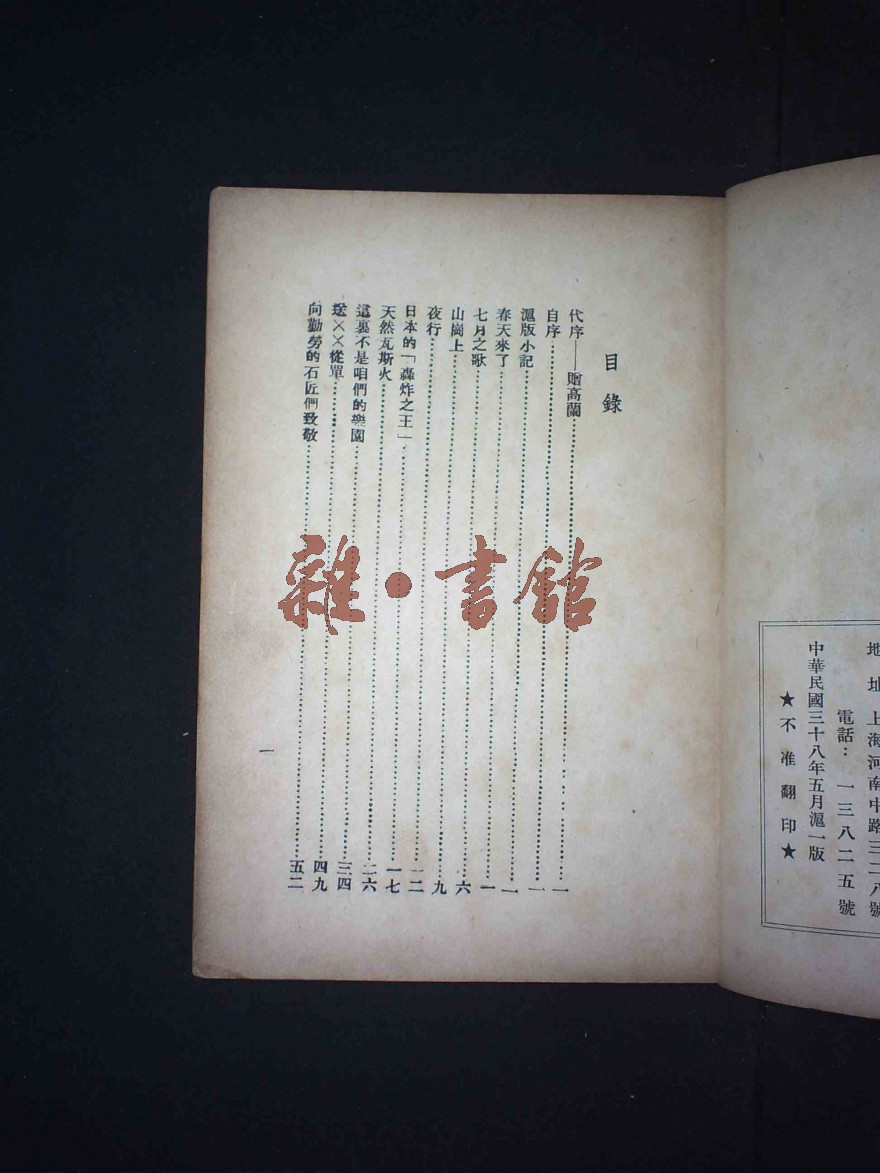 地址上海河南中路三二八號
電話：一三八二五號
中華民國三十八年五月滬一版
★不准翻印★
目錄
代序——贈高蘭……一
自序……一
滬版小記……一
春天來了……一
七月之歌……六
山崗上……九
夜行……一二
日本的「轟炸之王」……一七
天然瓦斯火……二六
這裏不是咱們的樂園……三四
送××從軍……四九
向勤勞的石匠們致敬……五二
一
雜·書館